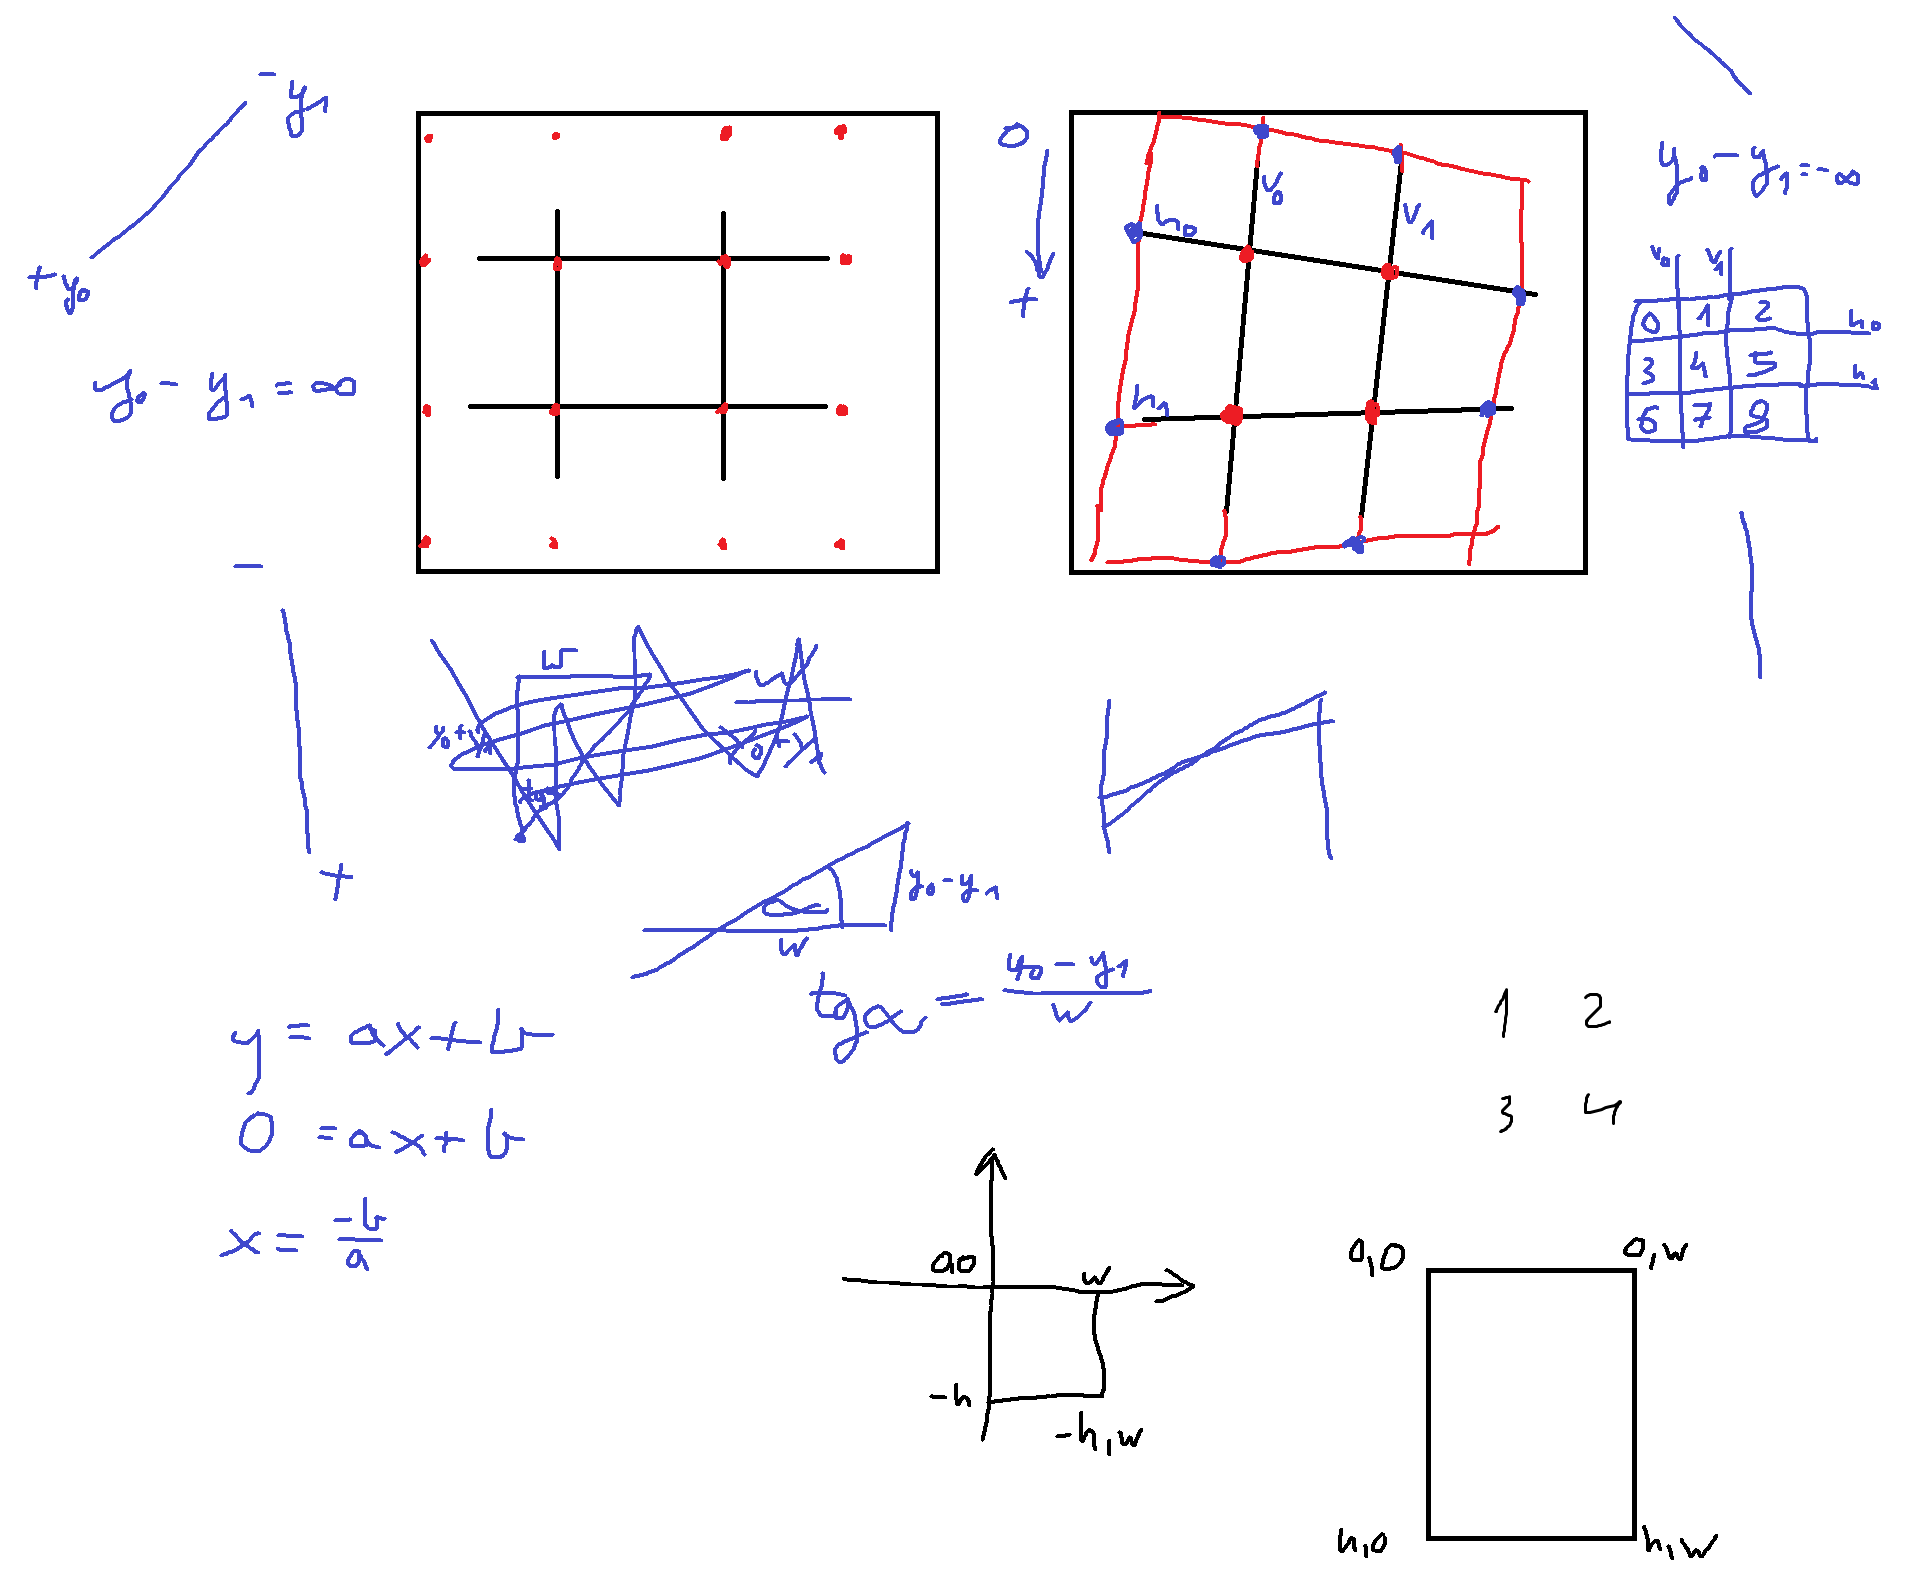 - y₁
+ y₀
y₀ - y₁ = ∞
0
+
v₀
v₁
h₀
h₁
y₀ - y₁ = -∞
v₀ v₁
0 1 2 h₀
3 4 5 h₁
6 7 8
-
+
w
y₀ + y₁
tg
w
y₀ - y₁
α
w
tg α = y₀ - y₁ / w
y = ax + b
0 = ax + b
x = -b / a
1 2
3 4
0,0
w
-h
-h, w
0,0
0, w
h,0
h, w